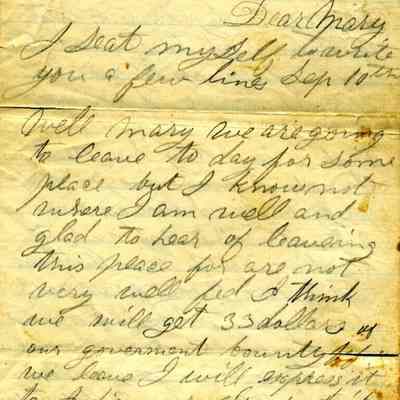 Dear Mary
I seat myself to write
you a few lines Sep 10th
Well mary we are going
to leave to day for some
place but I know not
where I am well and
glad to hear of leaveing
this place for are not
very well fed I think
we will get 33 dollars of
our goverment bounty
we leave I will express it
to